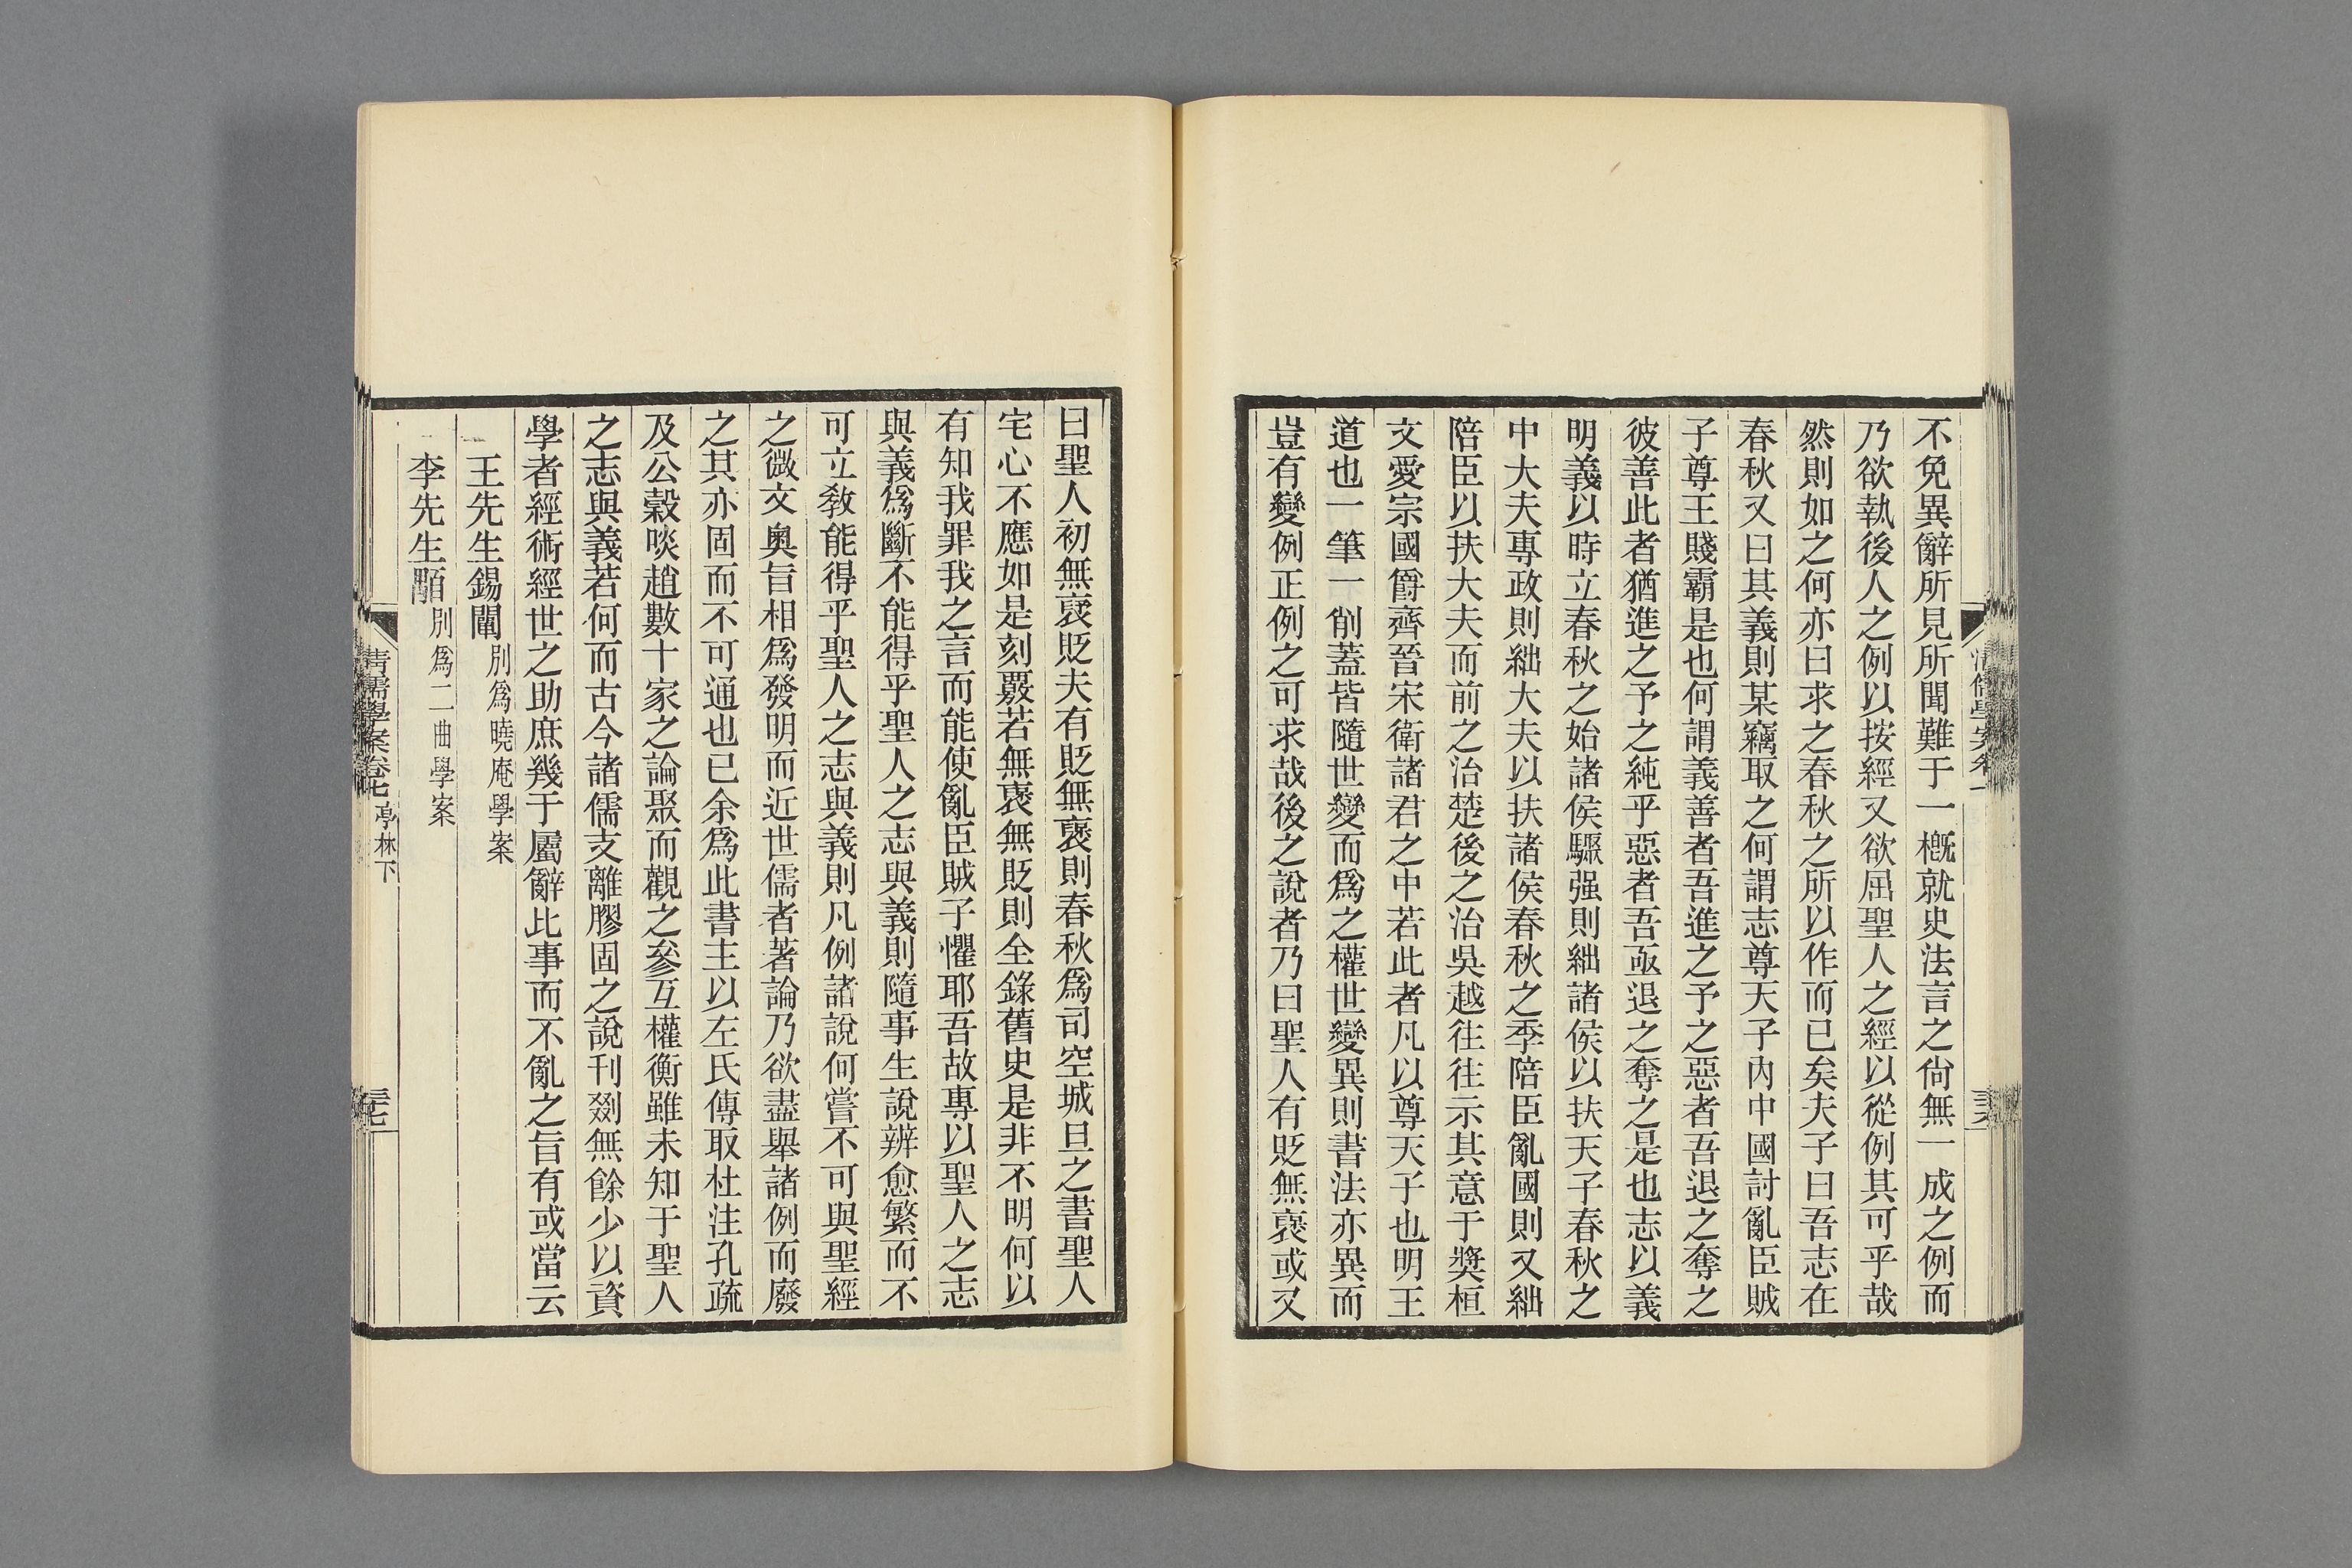 不免異辭所見所聞難于一槪就史法言之尙無一成之例而
乃欲執後人之例以按經又欲屈聖人之經以從例其可乎哉
然則如之何亦曰求之春秋之所以作而已矣夫子曰吾志在
春秋又曰其義則某竊取之何謂志尊天子內中國討亂臣賊
子尊王賤霸是也何謂義善者吾進之予之惡者吾退之奪之
彼善此者猶進之予之純乎惡者吾亟退之奪之是也志以義
明義以時立春秋之始諸侯驟强則絀諸侯以扶天子春秋之
中大夫專政則絀大夫以扶諸侯春秋之季陪臣亂國則又絀
陪臣以扶大夫而前之治楚後之治吳越往往示其意于奬桓
文愛宗國爵齊晉宋衛諸君之中若此者凡以尊天子也明王
道也一筆一削蓋皆隨世變而爲之權世變異則書法亦異而
豈有變例正例之可求哉後之說者乃曰聖人有貶無襃或又
曰聖人初無襃貶夫有貶無襃則春秋爲司空城旦之書聖人
宅心不應如是刻覈若無襃無貶則全錄舊史是非不明何以
有知我罪我之言而能使亂臣賊子懼耶吾故專以聖人之志
與義爲斷不能得乎聖人之志與義則隨事生說辨愈繁而不
可立敎能得乎聖人之志與義則凡例諸說何嘗不可與聖經
之微文奧旨相爲發明而近世儒者著論乃欲盡舉諸例而廢
之其亦固而不可通也已余爲此書主以左氏傳取杜注孔疏
及公榖啖趙數十家之論聚而觀之參互權衡雖未知于聖人
之志與義若何而古今諸儒支離膠固之說刊剟無餘少以資
學者經術經世之助庶幾于屬辭比事而不亂之旨有或當云
王先生錫闡別爲曉庵學案
李先生顒別爲二曲學案
清儒學案卷七亭林下